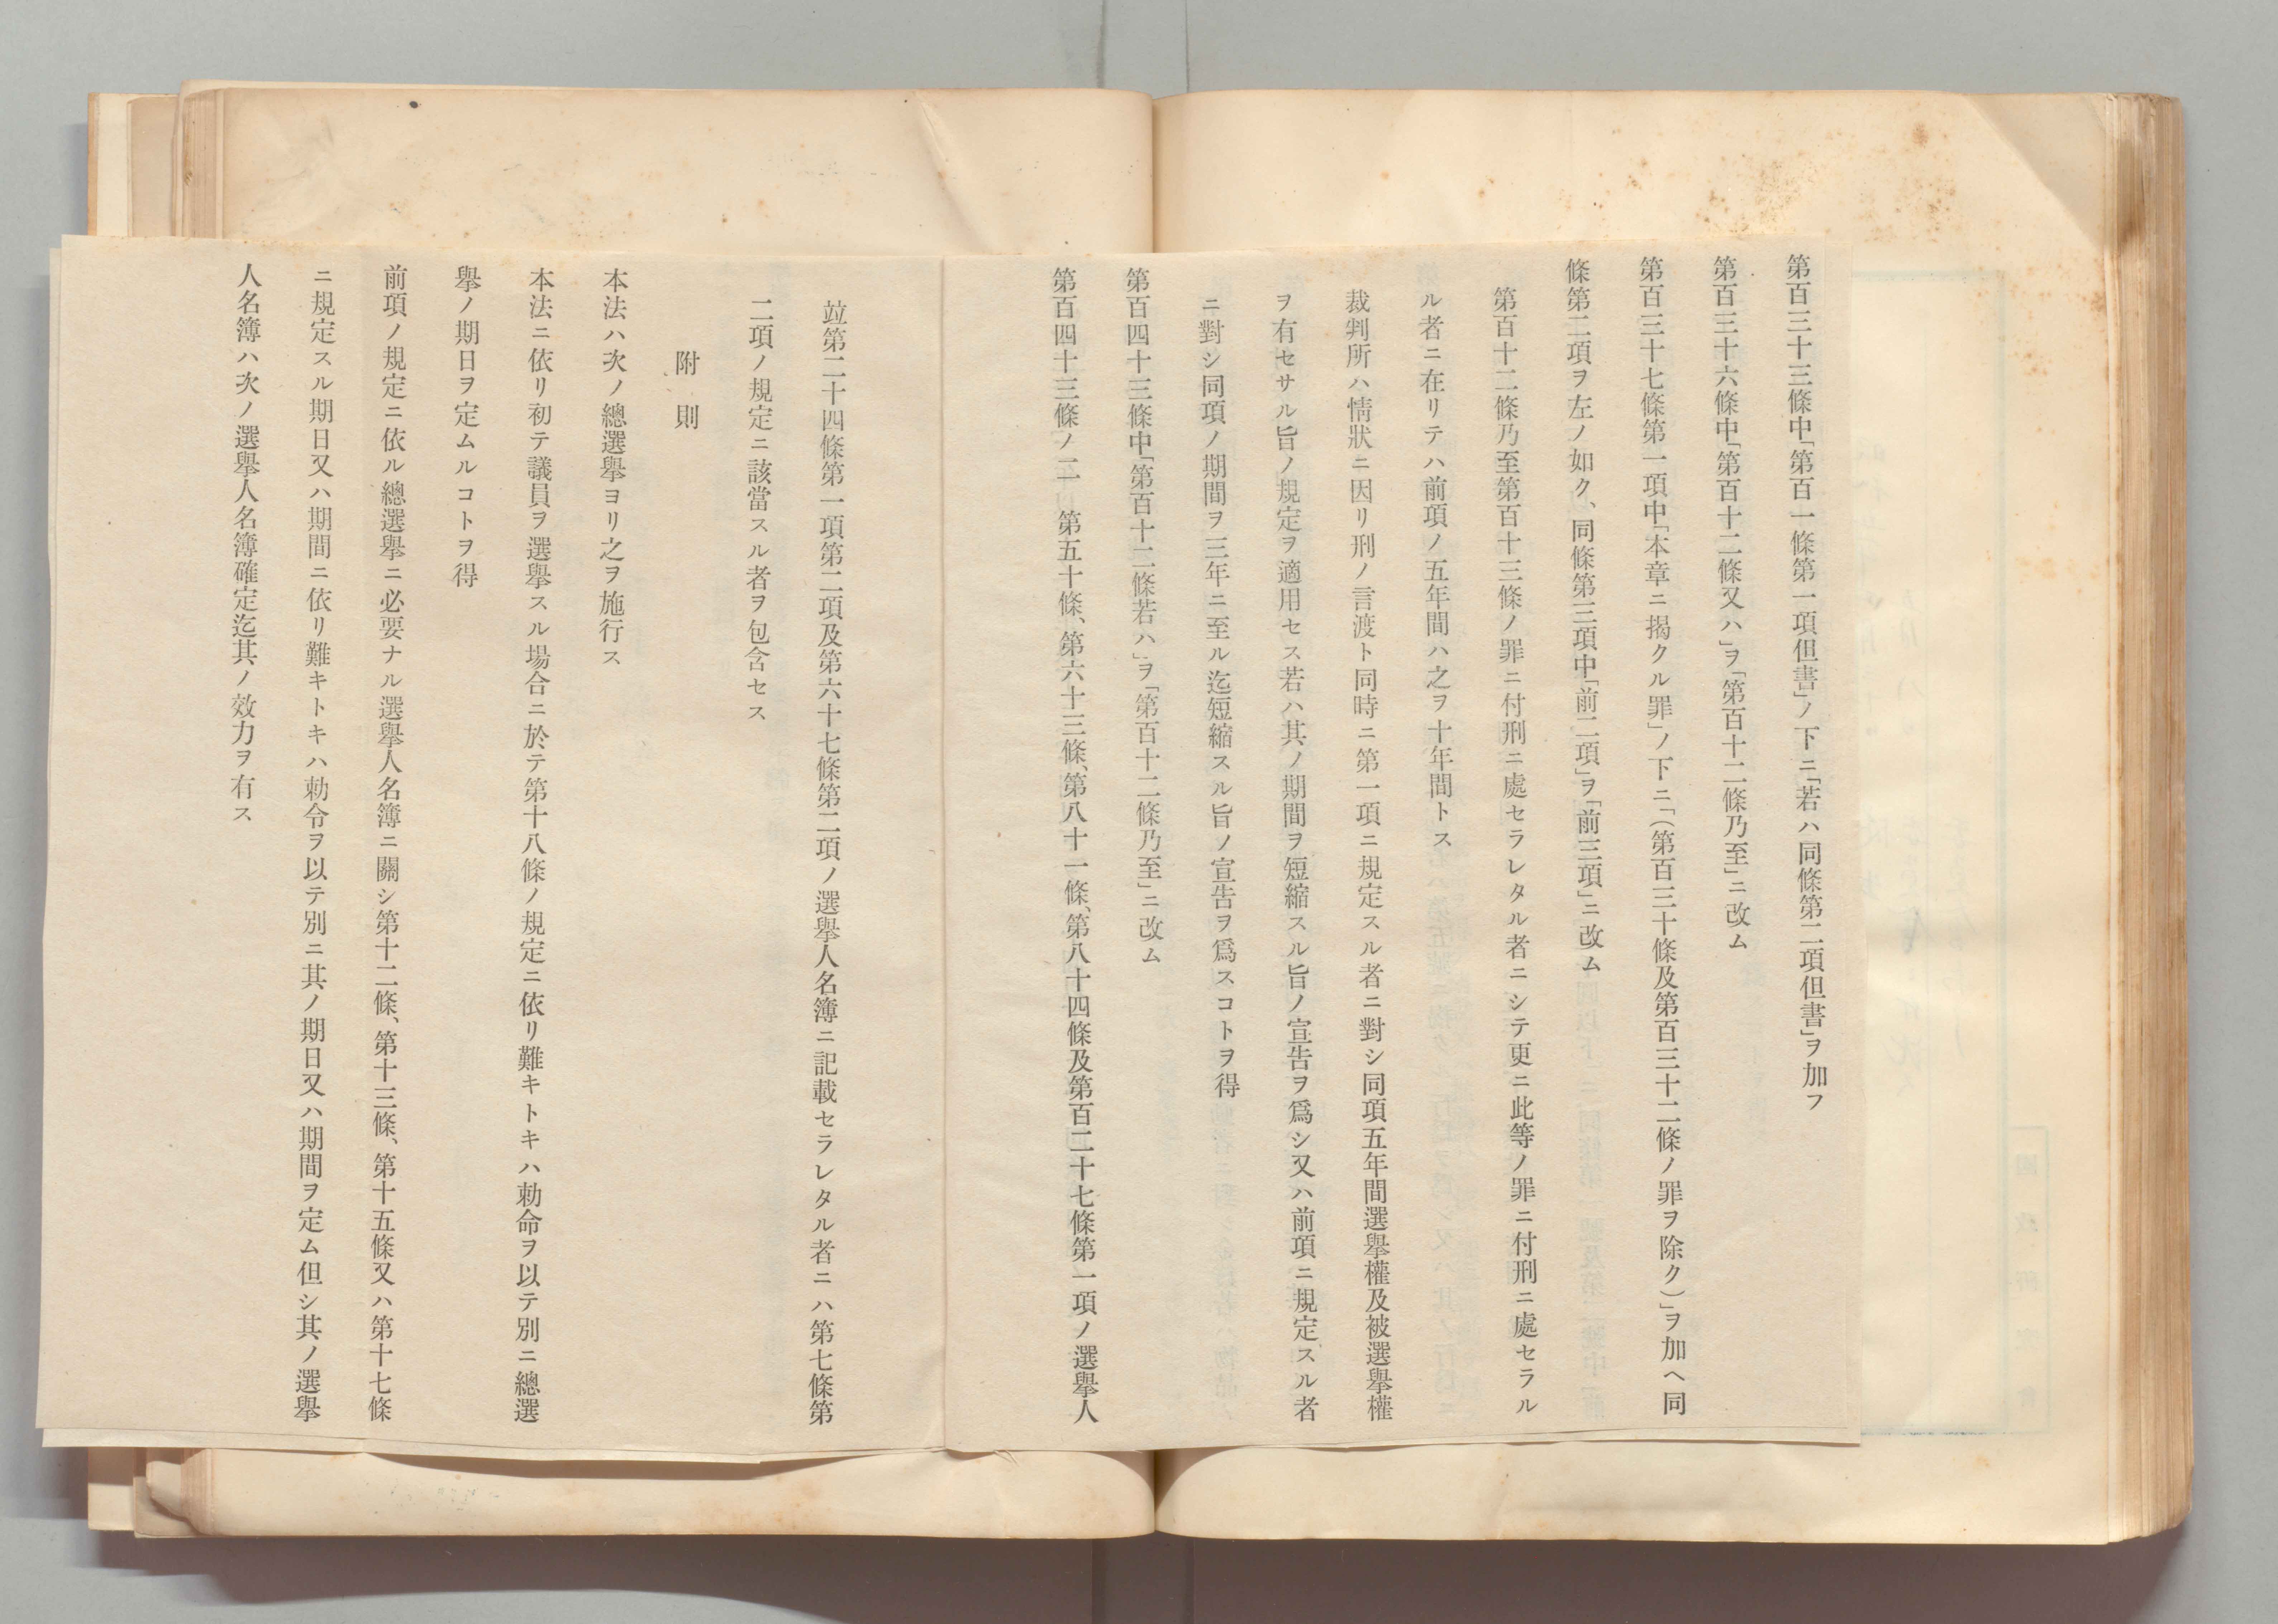 第百三十三條中「第百一條第一項但書」ノ下ニ「若ハ同條第二項但書」ヲ加フ
第百三十六條中「第百十二條又ハ」ヲ「第百十二條乃至」ニ改ム
第百三十七條第一項中「本章ニ揭クル罪」ノ下ニ「(第百三十條及第百三十二條ノ罪ヲ除ク)」ヲ加ヘ同
條第二項ヲ左ノ如ク、同條第三項中「前二項」ヲ「前三項」ニ改ム
第百十二條乃至第百十三條ノ罪ニ付刑ニ處セラレタル者ニシテ更ニ此等ノ罪ニ付刑ニ處セラル
ル者ニ在リテハ前項ノ五年間ハ之ヲ十年間トス
裁判所ハ情狀ニ因リ刑ノ言渡ト同時ニ第一項ニ規定スル者ニ對シ同項五年間選擧權及被選擧權
ヲ有セサル旨ノ規定ヲ適用セス若ハ其ノ期間ヲ短縮スル旨ノ宣告ヲ爲シ又ハ前項ニ規定スル者
ニ對シ同項ノ期間ヲ三年ニ至ル迄短縮スル旨ノ宣告ヲ爲スコトヲ得
第百四十三條中「第百十二條若ハ」ヲ「第百十二條乃至」ニ改ム
第百四十三條ノ二　第五十條、第六十三條、第八十一條、第八十四條及第百二十七條第一項ノ選擧人
竝第二十四條第一項第二項及第六十七條第二項ノ選擧人名簿ニ記載セラレタル者ニハ第七條第
二項ノ規定ニ該當スル者ヲ包含セス
附　則
本法ハ次ノ總選擧ヨリ之ヲ施行ス
本法ニ依リ初テ議員ヲ選擧スル場合ニ於テ第十八條ノ規定ニ依リ難キトキハ勅命ヲ以テ別ニ總選
擧ノ期日ヲ定ムルコトヲ得
前項ノ規定ニ依ル總選擧ニ必要ナル選擧人名簿ニ關シ第十二條、第十三條、第十五條又ハ第十七條
ニ規定スル期日又ハ期間ニ依リ難キトキハ勅令ヲ以テ別ニ其ノ期日又ハ期間ヲ定ム但シ其ノ選擧
人名簿ハ次ノ選擧人名簿確定迄其ノ效力ヲ有ス